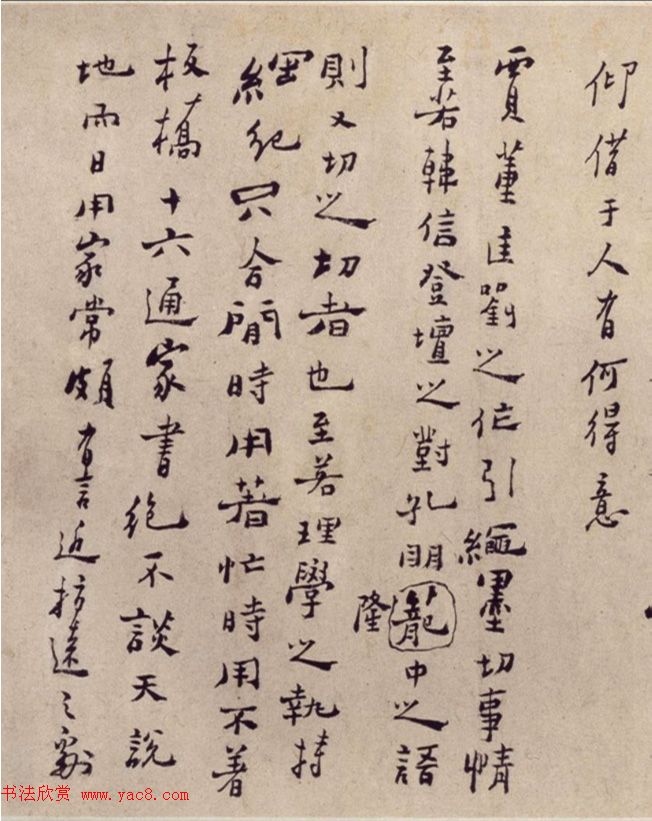 仰借于人有何得意
賈董匡劉之作引繩墨切事情
至若韓信登壇之對孔明籠中之語
隆
則又切之切者也至若理學之執持
綱紀只合閒時用著忙時用不著
板橋十六通家書絕不談天說
地而日用家常頗有言近指遠之處
书法欣赏 www.yac8.com